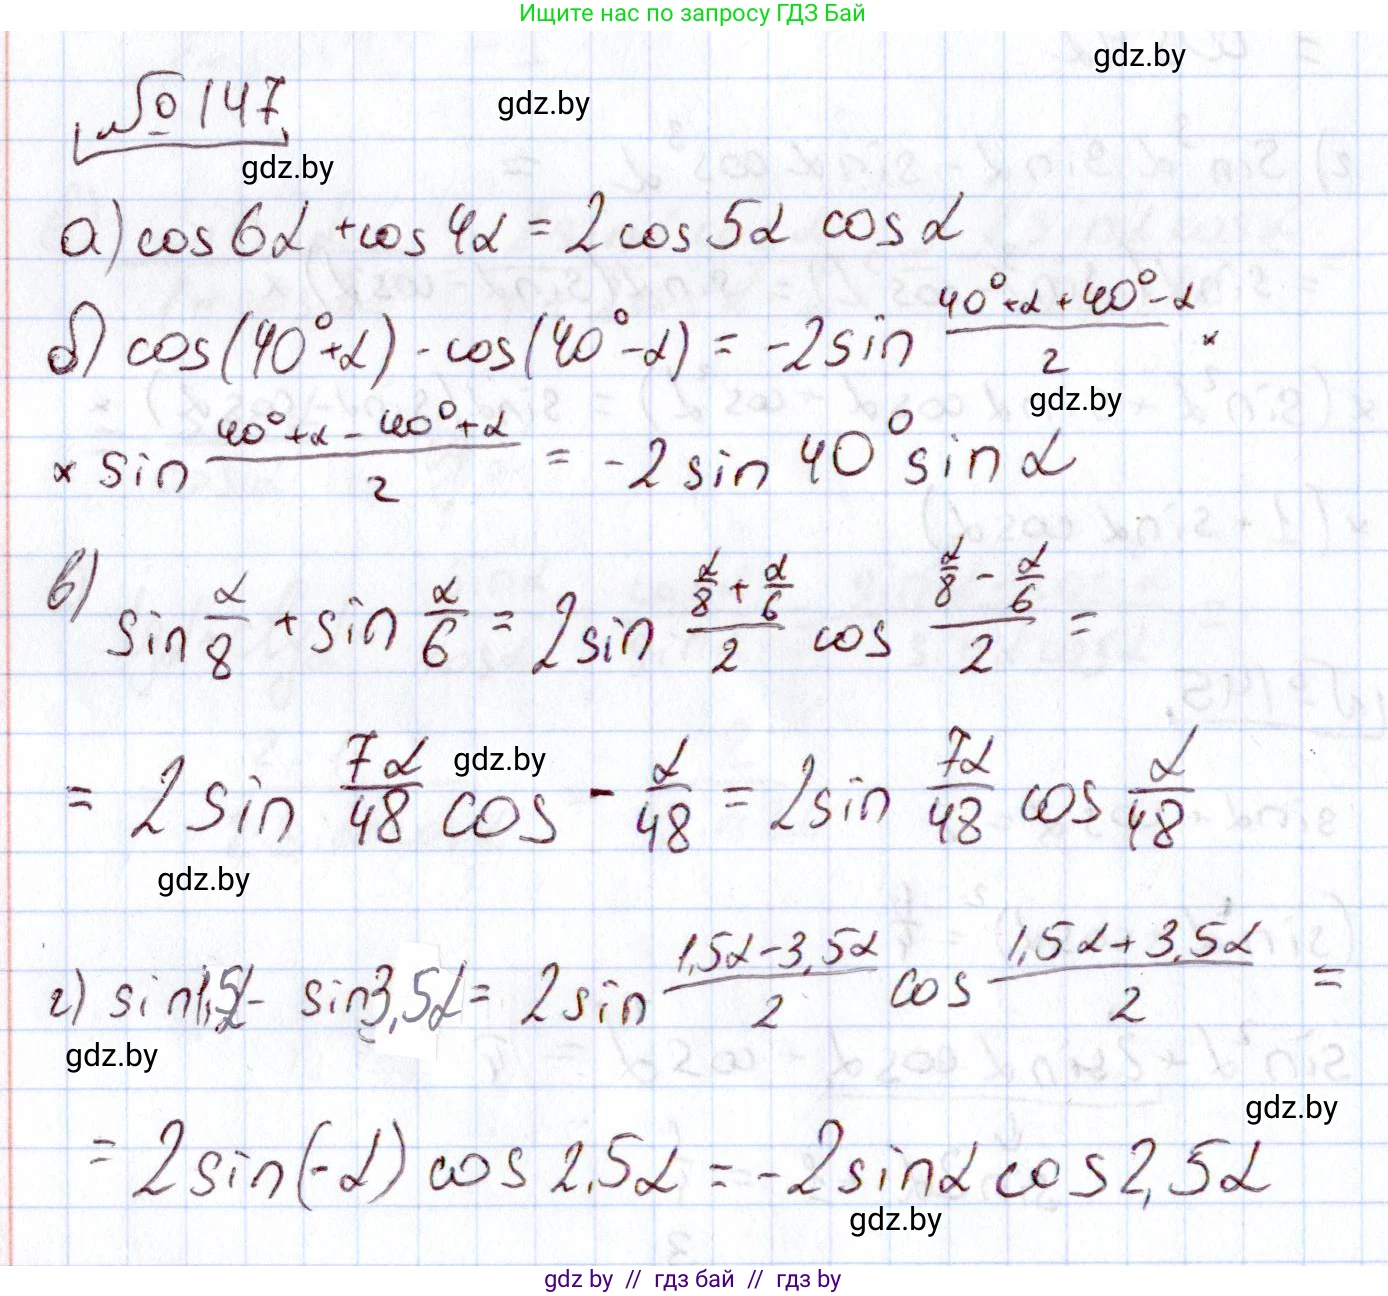 Ищите нас по запросу ГДЗ Бай
gdz.by
№ 147
gdz.by
gdz.by
а) cos 6α + cos 4α = 2 cos 5α cos α
б) cos(40° + α) - cos(40° - α) = -2 sin (40° + α + 40° - α)/2 ×
gdz.by
× sin (40° + α - 40° + α)/2 = -2 sin 40° sin α
в) sin α/8 + sin α/6 = 2 sin (α/8 + α/6)/2 cos (α/8 - α/6)/2 =
= 2 sin 7α/48 cos - α/48 = 2 sin 7α/48 cos α/48
gdz.by
gdz.by
г) sin 1,5α - sin 3,5α = 2 sin (1,5α - 3,5α)/2 cos (1,5α + 3,5α)/2 =
gdz.by
gdz.by
= 2 sin(-α) cos 2,5α = -2 sin α cos 2,5α
gdz.by
gdz by // гдз бай // гдз by